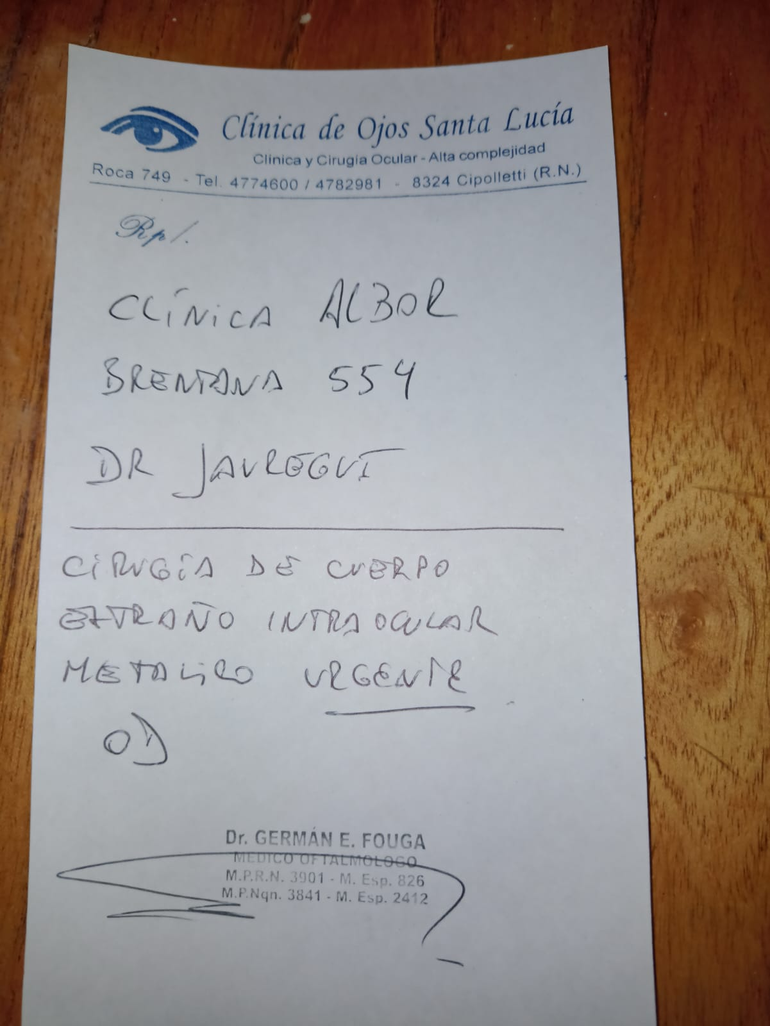 Clínica de Ojos Santa Lucía
Clínica y Cirugía Ocular - Alta complejidad
Roca 749 - Tel. 4774600 / 4782981 - 8324 Cipolletti (R.N.)
Rp/.
CLÍNICA ALBOR
BRENTANA 554
DR JAUREGUI
CIRUGÍA DE CUERPO
EXTRAÑO INTRAOCULAR
METALICO URGENTE
OD
Dr. GERMÁN E. FOUGA
MEDICO OFTALMOLOGO
M.P.R.N. 3901 - M. Esp. 826
M.P.Nqn. 3841 - M. Esp. 2412